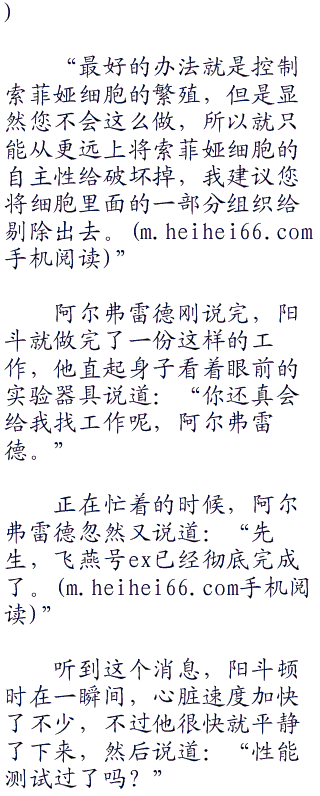 )
“最好的办法就是控制
索菲娅细胞的繁殖，但是显
然您不会这么做，所以就只
能从更远上将索菲娅细胞的
自主性给破坏掉，我建议您
将细胞里面的一部分组织给
剔除出去。(m.heihei66.com
手机阅读)”
阿尔弗雷德刚说完，阳
斗就做完了一份这样的工
作，他直起身子看着眼前的
实验器具说道：“你还真会
给我找工作呢，阿尔弗雷
德。”
正在忙着的时候，阿尔
弗雷德忽然又说道：“先
生，飞燕号ex已经彻底完成
了。(m.heihei66.com手机阅
读)”
听到这个消息，阳斗顿
时在一瞬间，心脏速度加快
了不少，不过他很快就平静
了下来，然后说道：“性能
测试过了吗？”